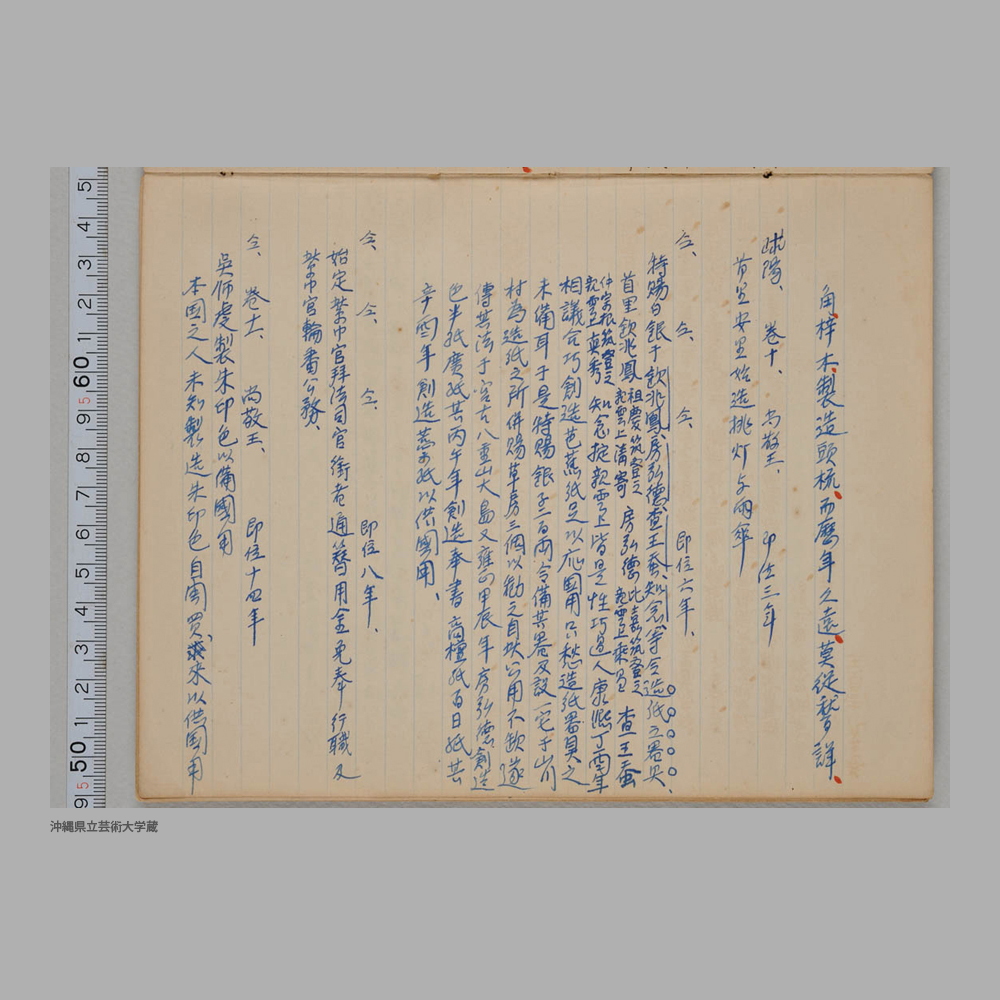 角、梓木、製造頭梳、而歷年久遠、莫從甞詳、
球陽、 巻十、 尚敬王、 即位三年
首里安里始造挑灯与雨傘
仝、 仝、 仝、 即位六年、
特賜白銀于歆兆鳳房弘德査王蚕知念等令造紙之器具、
首里歆兆鳳 祖慶筑登之親雲上清寄 房弘德 比嘉筑登之親雲上乗昌 査王蚕
仲宗根筑登之親雲上真秀 知念掟親雲上皆是性巧過人康熙丁酉年
相議合巧創造芭蕉紙足以応国用只愁造紙器具之
未備耳于是特賜銀子二百両令備其器及設一宅于山川
村為造紙之所併賜草房三個以勧之自此公用不欠遂
傳其法于宮古八重山大島又雍正甲辰年房弘德創造
色半紙廣紙其丙午年創造奉書高檀紙百日紙其
辛酉年創造 紙以供國用、
仝、 仝、 仝、 即位八年、
始定紫巾官拜法司官銜者通簪用金免奉行職及
紫巾官輪番公務、
仝、 巻十一、 尚敬王、 即位十四年
吳師虔製朱印色以備國用
本国之人未知製造朱印色自閩買来以供国用